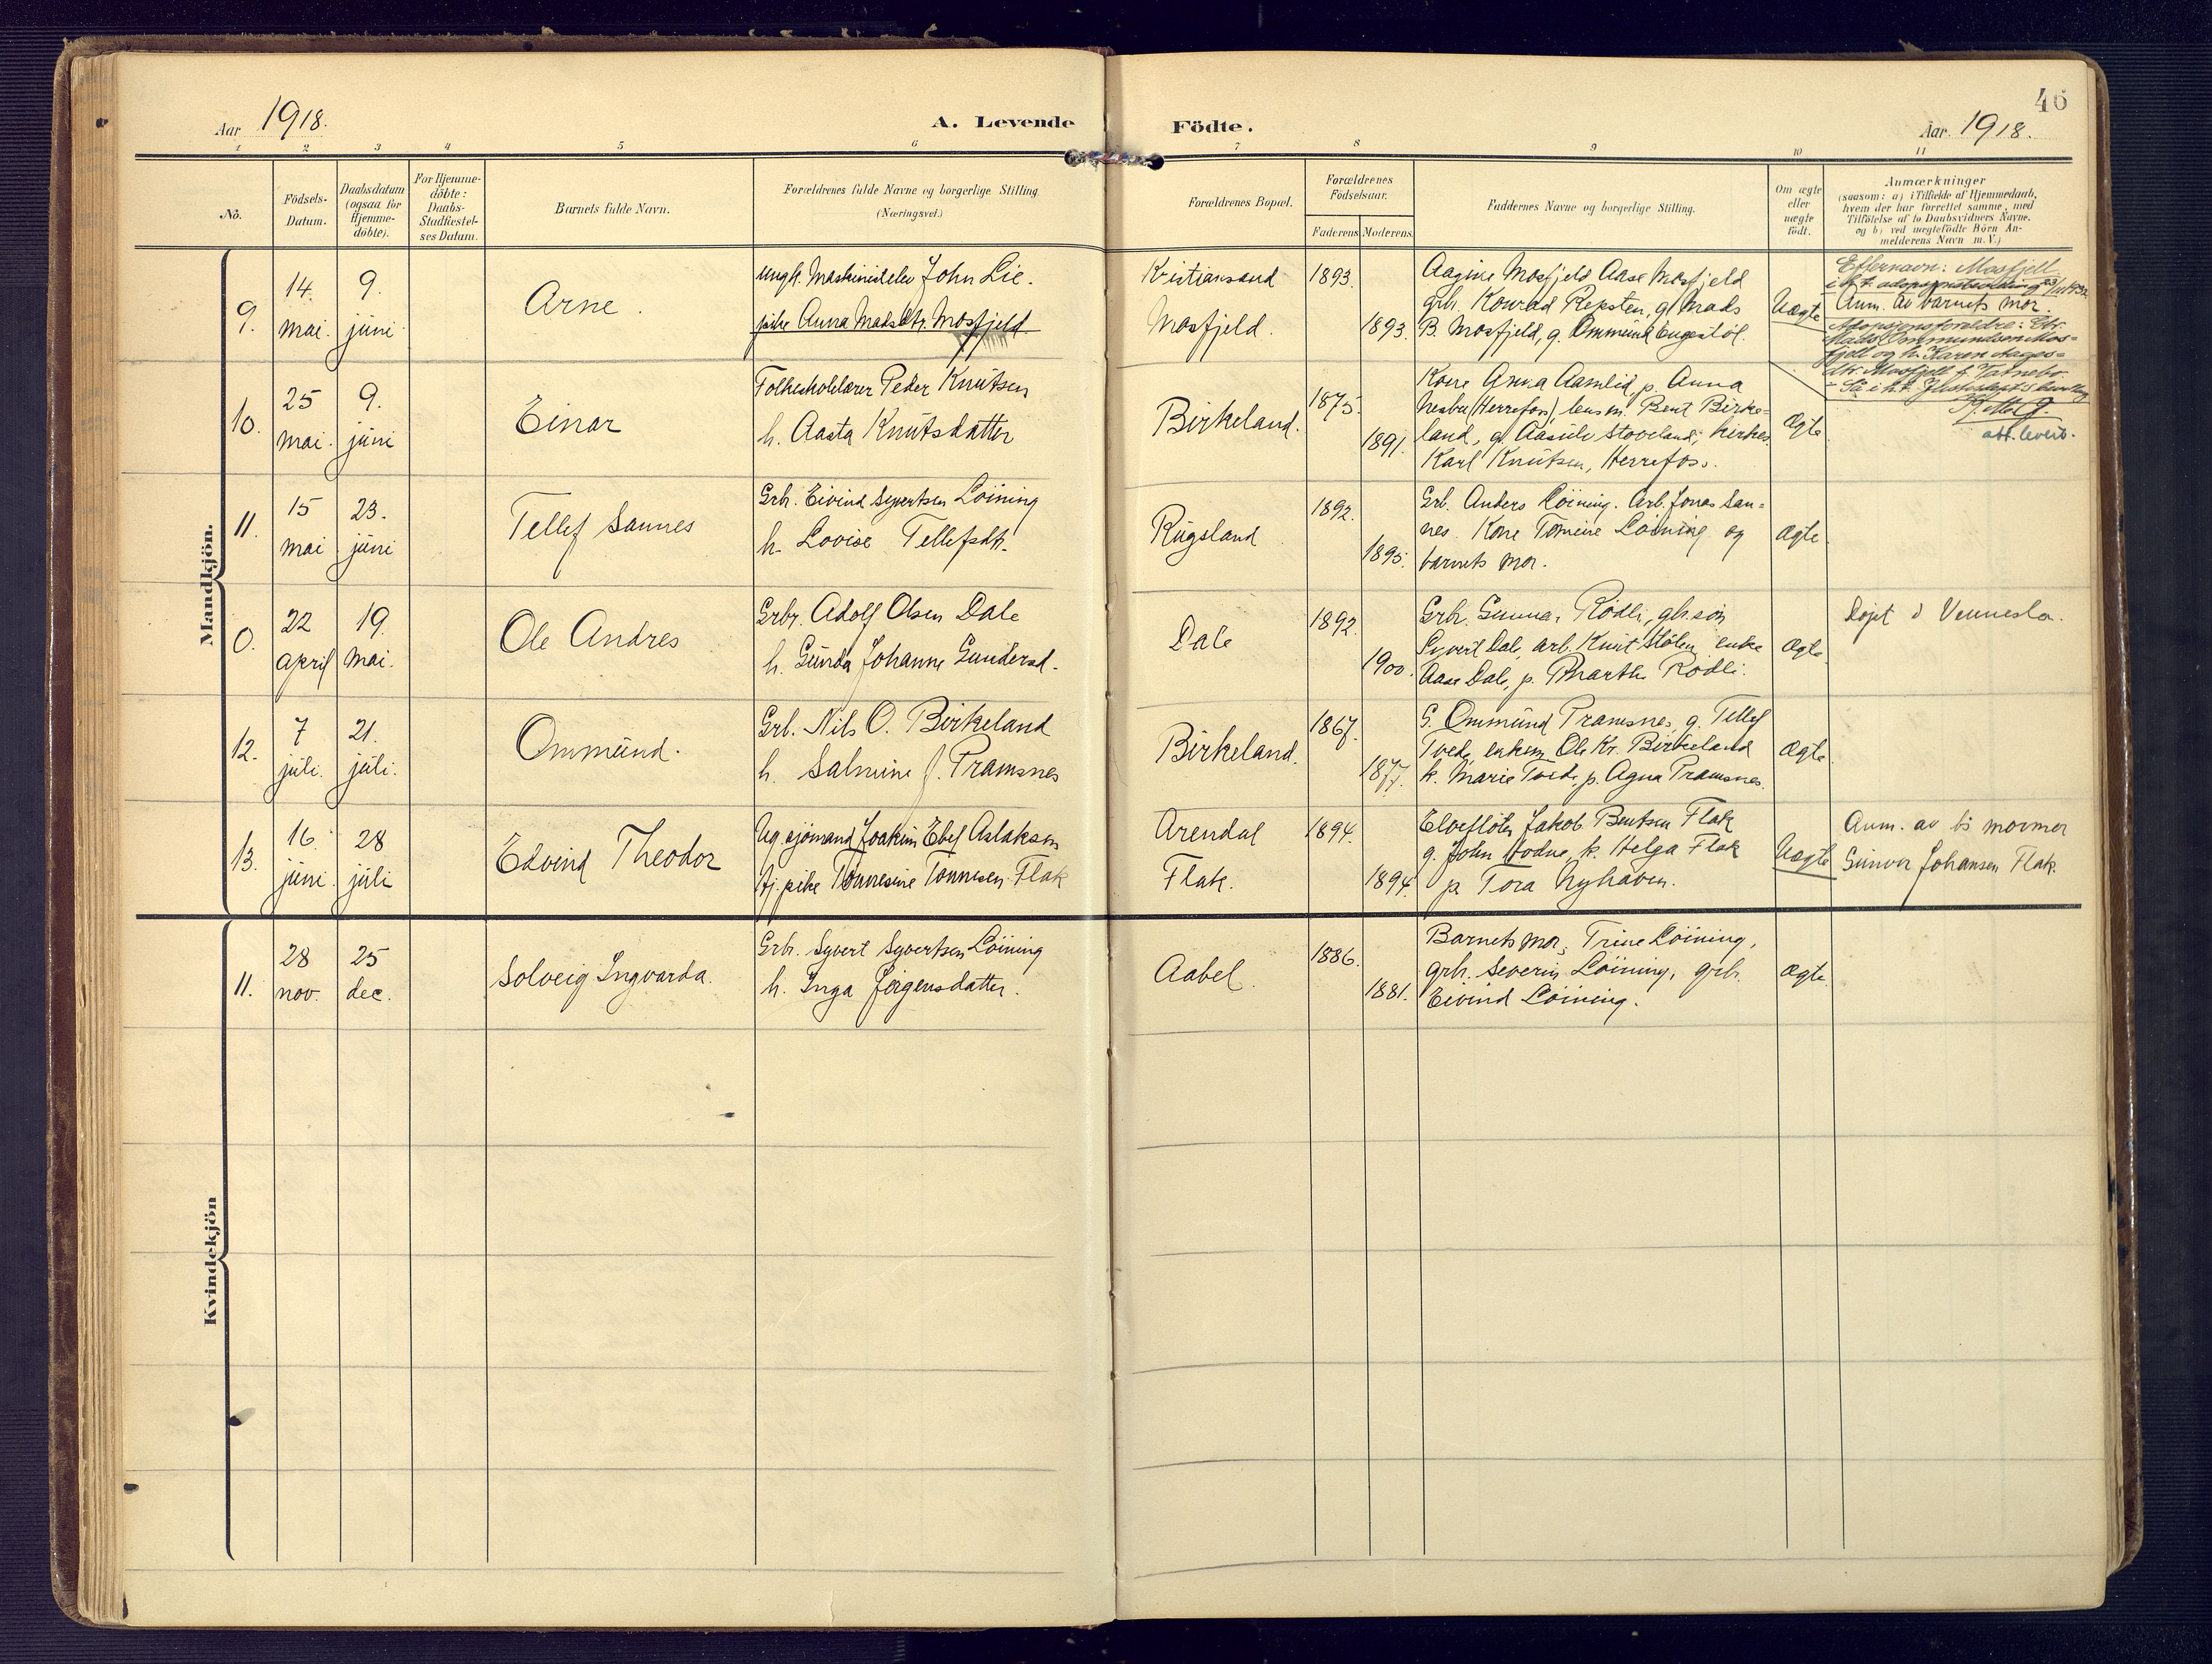 46
Aar 1918.
A. Levende
Födte.
Aar. 1918.
1 2 3 4 5 6 7 8 9 10 11
No.
Födsels-
Datum.
Daabsdatum
(ogsaa for
Hjemme-
döbte).
For Hjemme-
döbte:
Daabs-
Stadfæstel-
ses Datum.
Barnets fulde Navn.
Forældrenes fulde Navne og borgerlige Stilling
(Næringsvei.)
Forældrenes Bopæl.
Forældrenes
Födselsaar.
Faderens Moderens
Faddernes Navne og borgerlige Stilling.
Om ægte
eller
uægte
födt.
Anmærkninger
(saasom: a) i Tilfælde af Hjemmedaab,
hvem der har forrettet samme, med
Tilföielse af to Daabsvidners Navne.
og b) ved uægtefödte Börn An-
melderens Navn m. V.)
Mandkjön.
9.
14.
mai.
9.
juni
Arne
Ungk. Maskinistelev John Lie.
pike Anna Madsdtr. Mosfjeld.
Kristiansand
Mosfjeld.
1893.
1893.
Aagine Mosfjeld Aase Mosfjeld
grb. Konrad Repsten, g. Mads
B. Mosfjeld, g. Ommund Engestöl.
Uægte
Efternavn: Mosfjell
Anm. av barnets mor.
Adopsjonsforeldre: Gbr.
Mads Ommundsen Mos-
fjell og h. Karen Aages-
dtr. Mosfjell f. Tatnebo.
att. levert.
10.
25
mai.
9.
juni
Einar
Folkeskolelærer Peder Knutsen
h. Aasta Knutsdatter
Birkeland.
1875.
1891.
Kone Anna Aamlid p. Anna
Nesbu (Herrefos), lensm. Bent Birke-
land, g. Aasulv Stoveland; kirkes.
Karl Knutsen, Herrefoss.
ægte
11.
15
mai
23.
juni
Tellef Sannes
Grb. Eivind Syvertsen Löining
h. Lovise Tellefsdtr.
Rugsland
1892.
1895.
Grb. Anders Löining. Arb. Jonas San-
nes. Kone Tomine Löining og
barnets mor.
ægte
0.
22
april
19.
mai.
Ole Andres
Grbr. Adolf Olsen Dale
h. Gunda Johanne Gundersd.
Dale
1892.
1900.
Grb. Gunnar Rödli, gb. sön
Syvert Dale, arb. Knut Stölen, enke
Aase Dale, p. Marthe Rödli.
ægte
Döpt i Vennesla.
12.
7
juli.
21.
juli.
Ommund.
Grb. Nils O. Birkeland
h. Salmine J. Tramsnes
Birkeland.
1867.
1877.
G. Ommund Tramsnes, g. Tellef
Tvede, enkem. Ole Kr. Birkeland
k. Marie Tvede, p. Agna Tramsnes.
ægte
13.
16.
juni.
28
juli
Edvind Theodor
Ug. sjömand Joakim Ebef Aslaksen
tj. pike Tönnesine Tönnesen Flak
Arendal
Flak.
1894.
1894.
Elveflöter Jakob Bentsen Flak
g. John Hodne, k. Helga Flak
p. Tora Nyhaven.
Uægte
Anm. av b's mormor
Gunvor Johansen Flak.
Kvindekjön
11.
28
nov.
25
dec.
Solveig Ingvarda.
Grb. Syvert Syvertsen Löining
h. Inga Jörgensdatter.
Aabel.
1886.
1881.
Barnets mor, Trine Löining,
grb. Severin Löining, grb.
Eivind Löining.
ægte